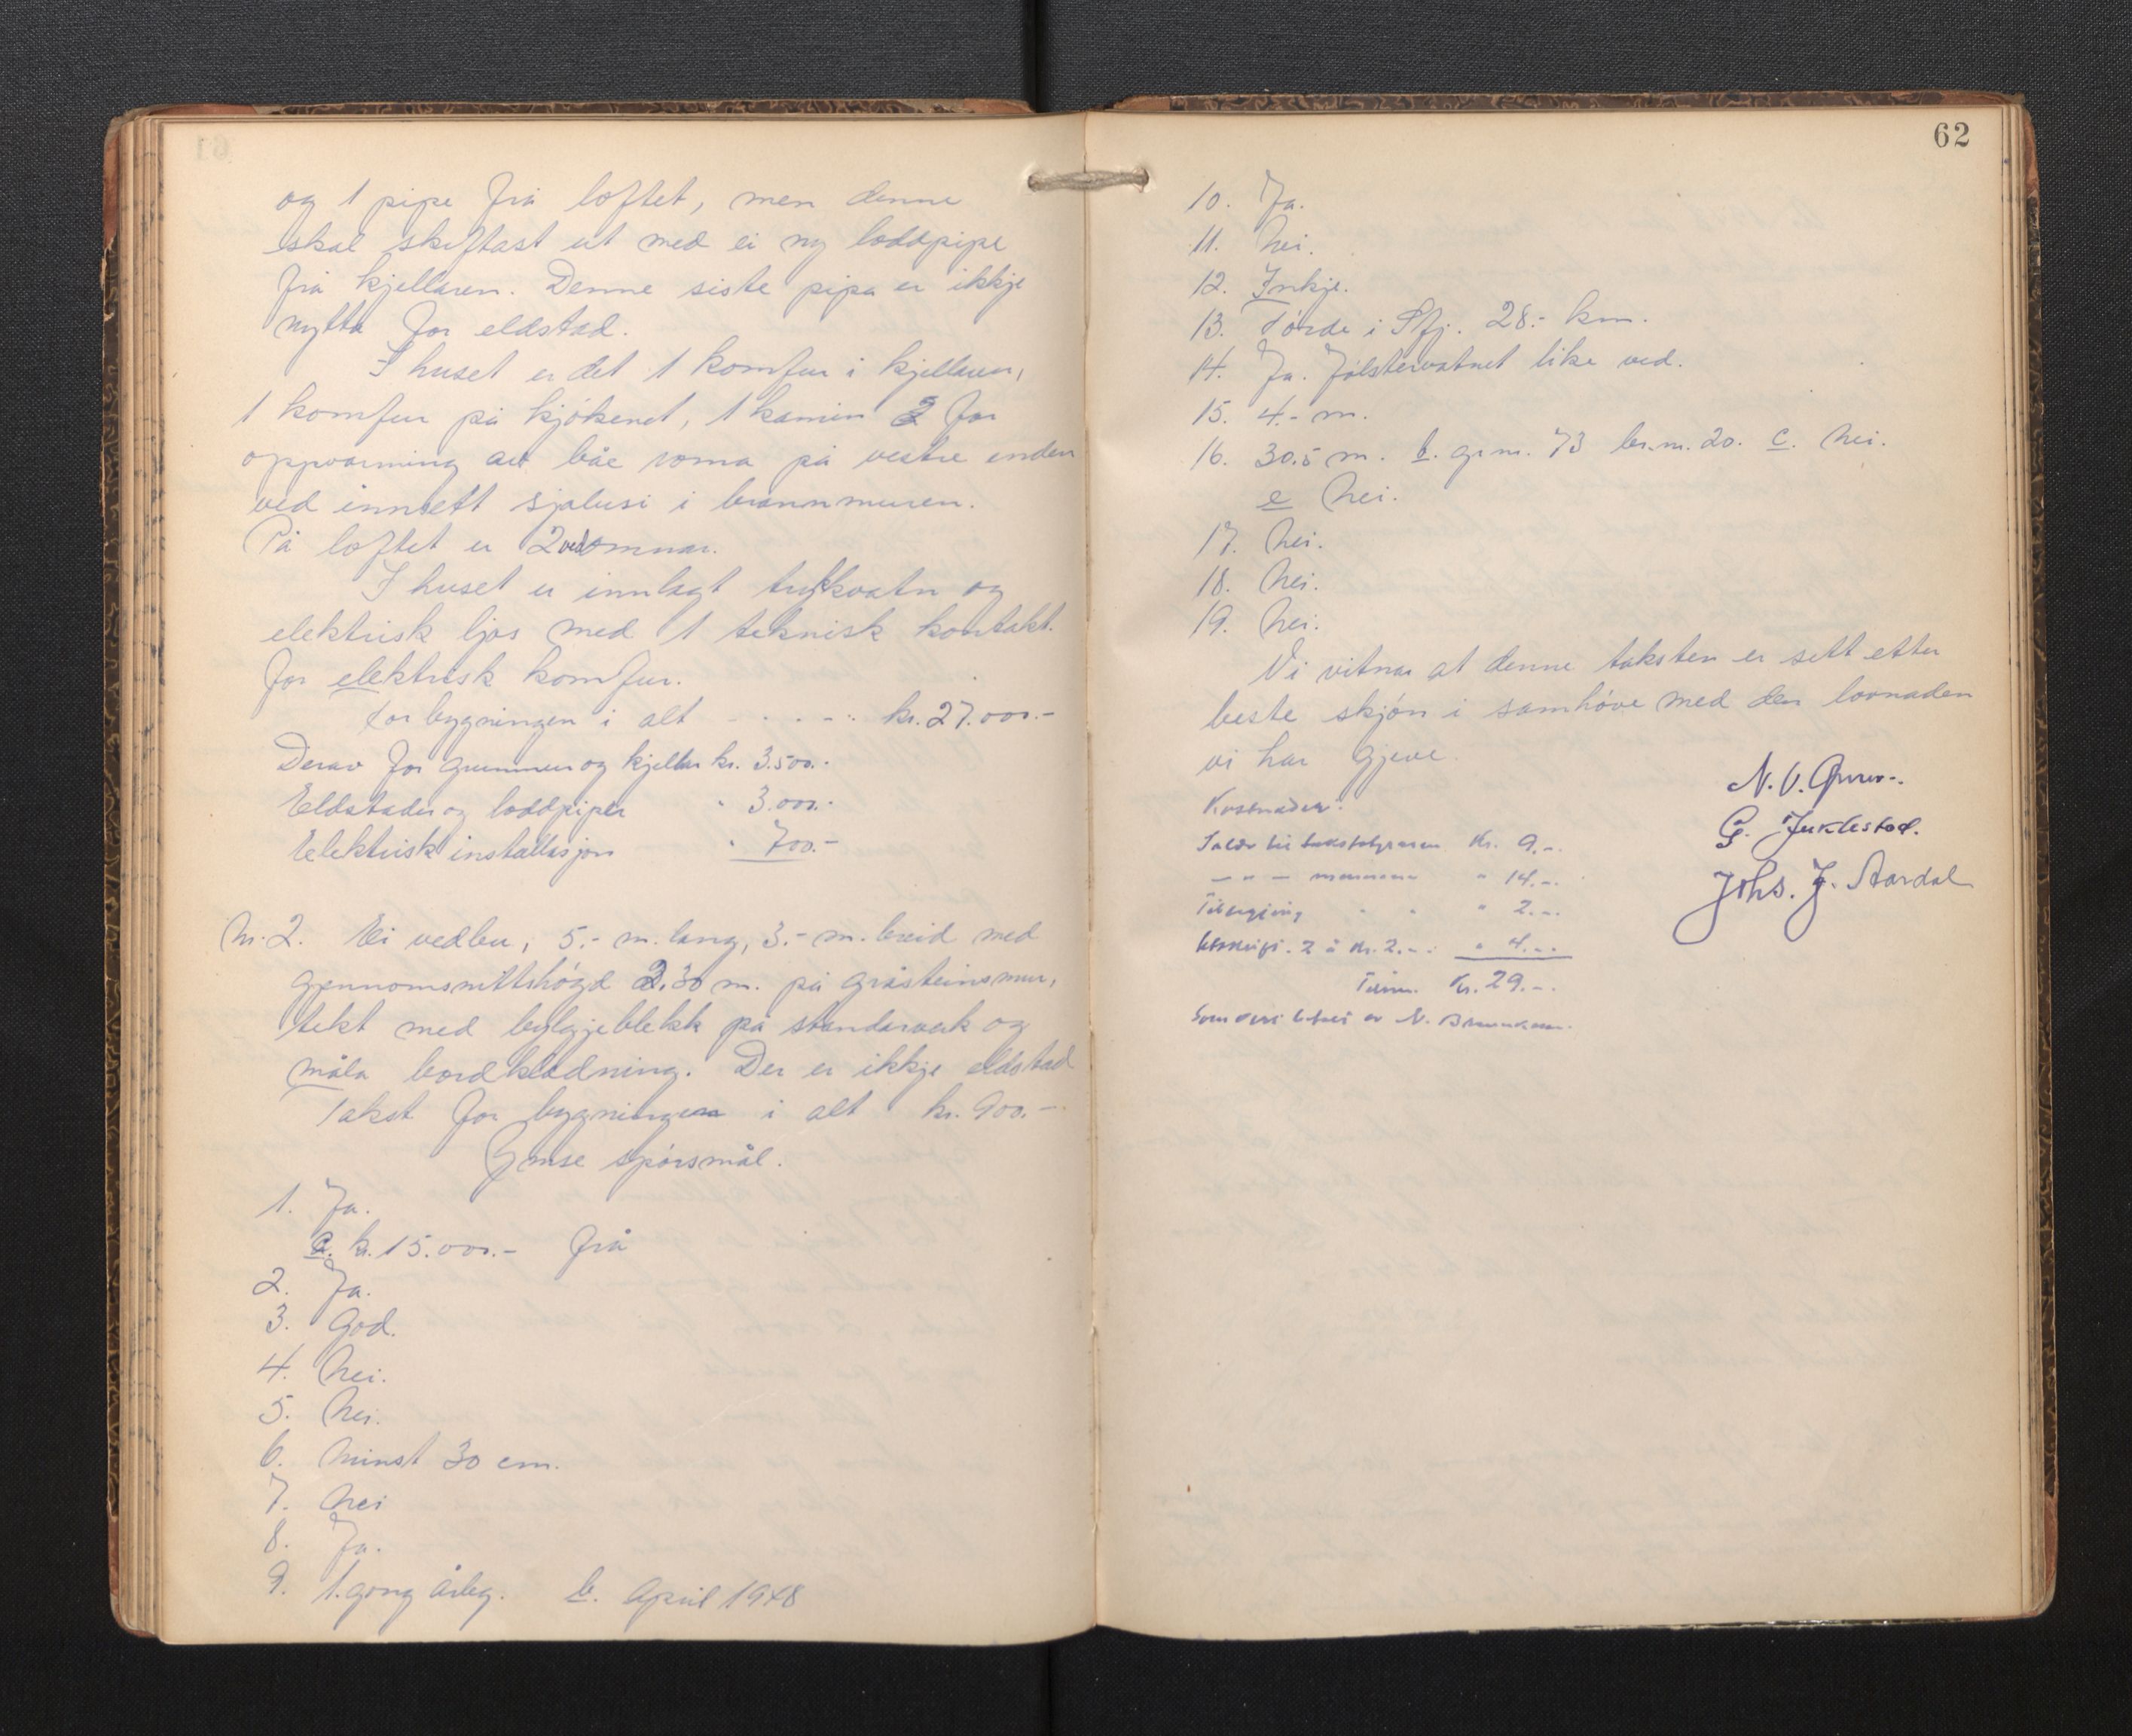 og 1 pipe frå loftet, men denne
skal skiftast ut med ei ny loddpipe
frå kjellaren. Denne siste pipa er ikkje
nytta for eldstad.
I huset er det 1 komfur i kjellaren,
1 komfur på kjøkenet, 1 kamin for
oppvarming av båe roma på vestre enden
ved innsett sjalusi i brannmuren.
På loftet er 2 vedomnar.
I huset er innlagt trykkvatn og
elektrisk ljos med 1 teknisk kontakt.
for elektrisk komfur.
For bygningen i alt - - - - kr. 27.000.-
Derav for grunnmur og kjellar kr. 3.500.-
Eldstader og loddpiper " 3.000.-
Elektrisk installasjon " 700.-
Nr. 2. Ei vedbu, 5.- m. lang, 3.- m. breid med
gjennomsnittshøgd 2.30 m. på gråsteinsmur,
tekt med bylgjeblekk på standarverk og
måla bordkledning. Der er ikkje eldstad
Takst for bygningen i alt kr. 900.-
Ymse spørsmål.
1. Ja.
a. kr. 15.000.- frå
2. Ja.
3. God.
4. Nei.
5. Nei.
6. Minst 30 cm.
7. Nei
8. Ja.
9. 1. gong årleg. b. April 1948
62
10. Ja.
11. Nei.
12. Inkje.
13. Førde i Sfj. 28.- km.
14. Ja. Jølstervatnet like ved.
15. 4.- m.
16. 30.5 m. b. gr.nr. 73 br.nr. 20. c. Nei.
e Nei.
17. Nei.
18. Nei.
19. Nei.
Vi vitnar at denne taksten er sett etter
beste skjøn i samhøve med den lovnaden
vi har gjeve
N. O.
G. Juklestad.
Johs. J. Aardal
Kostnader:
til Kr. 9.-.
- " - " 14.-.
" 2.-.
2 à Kr. 2.-. " 4.-.
Kr. 29.-.
N.